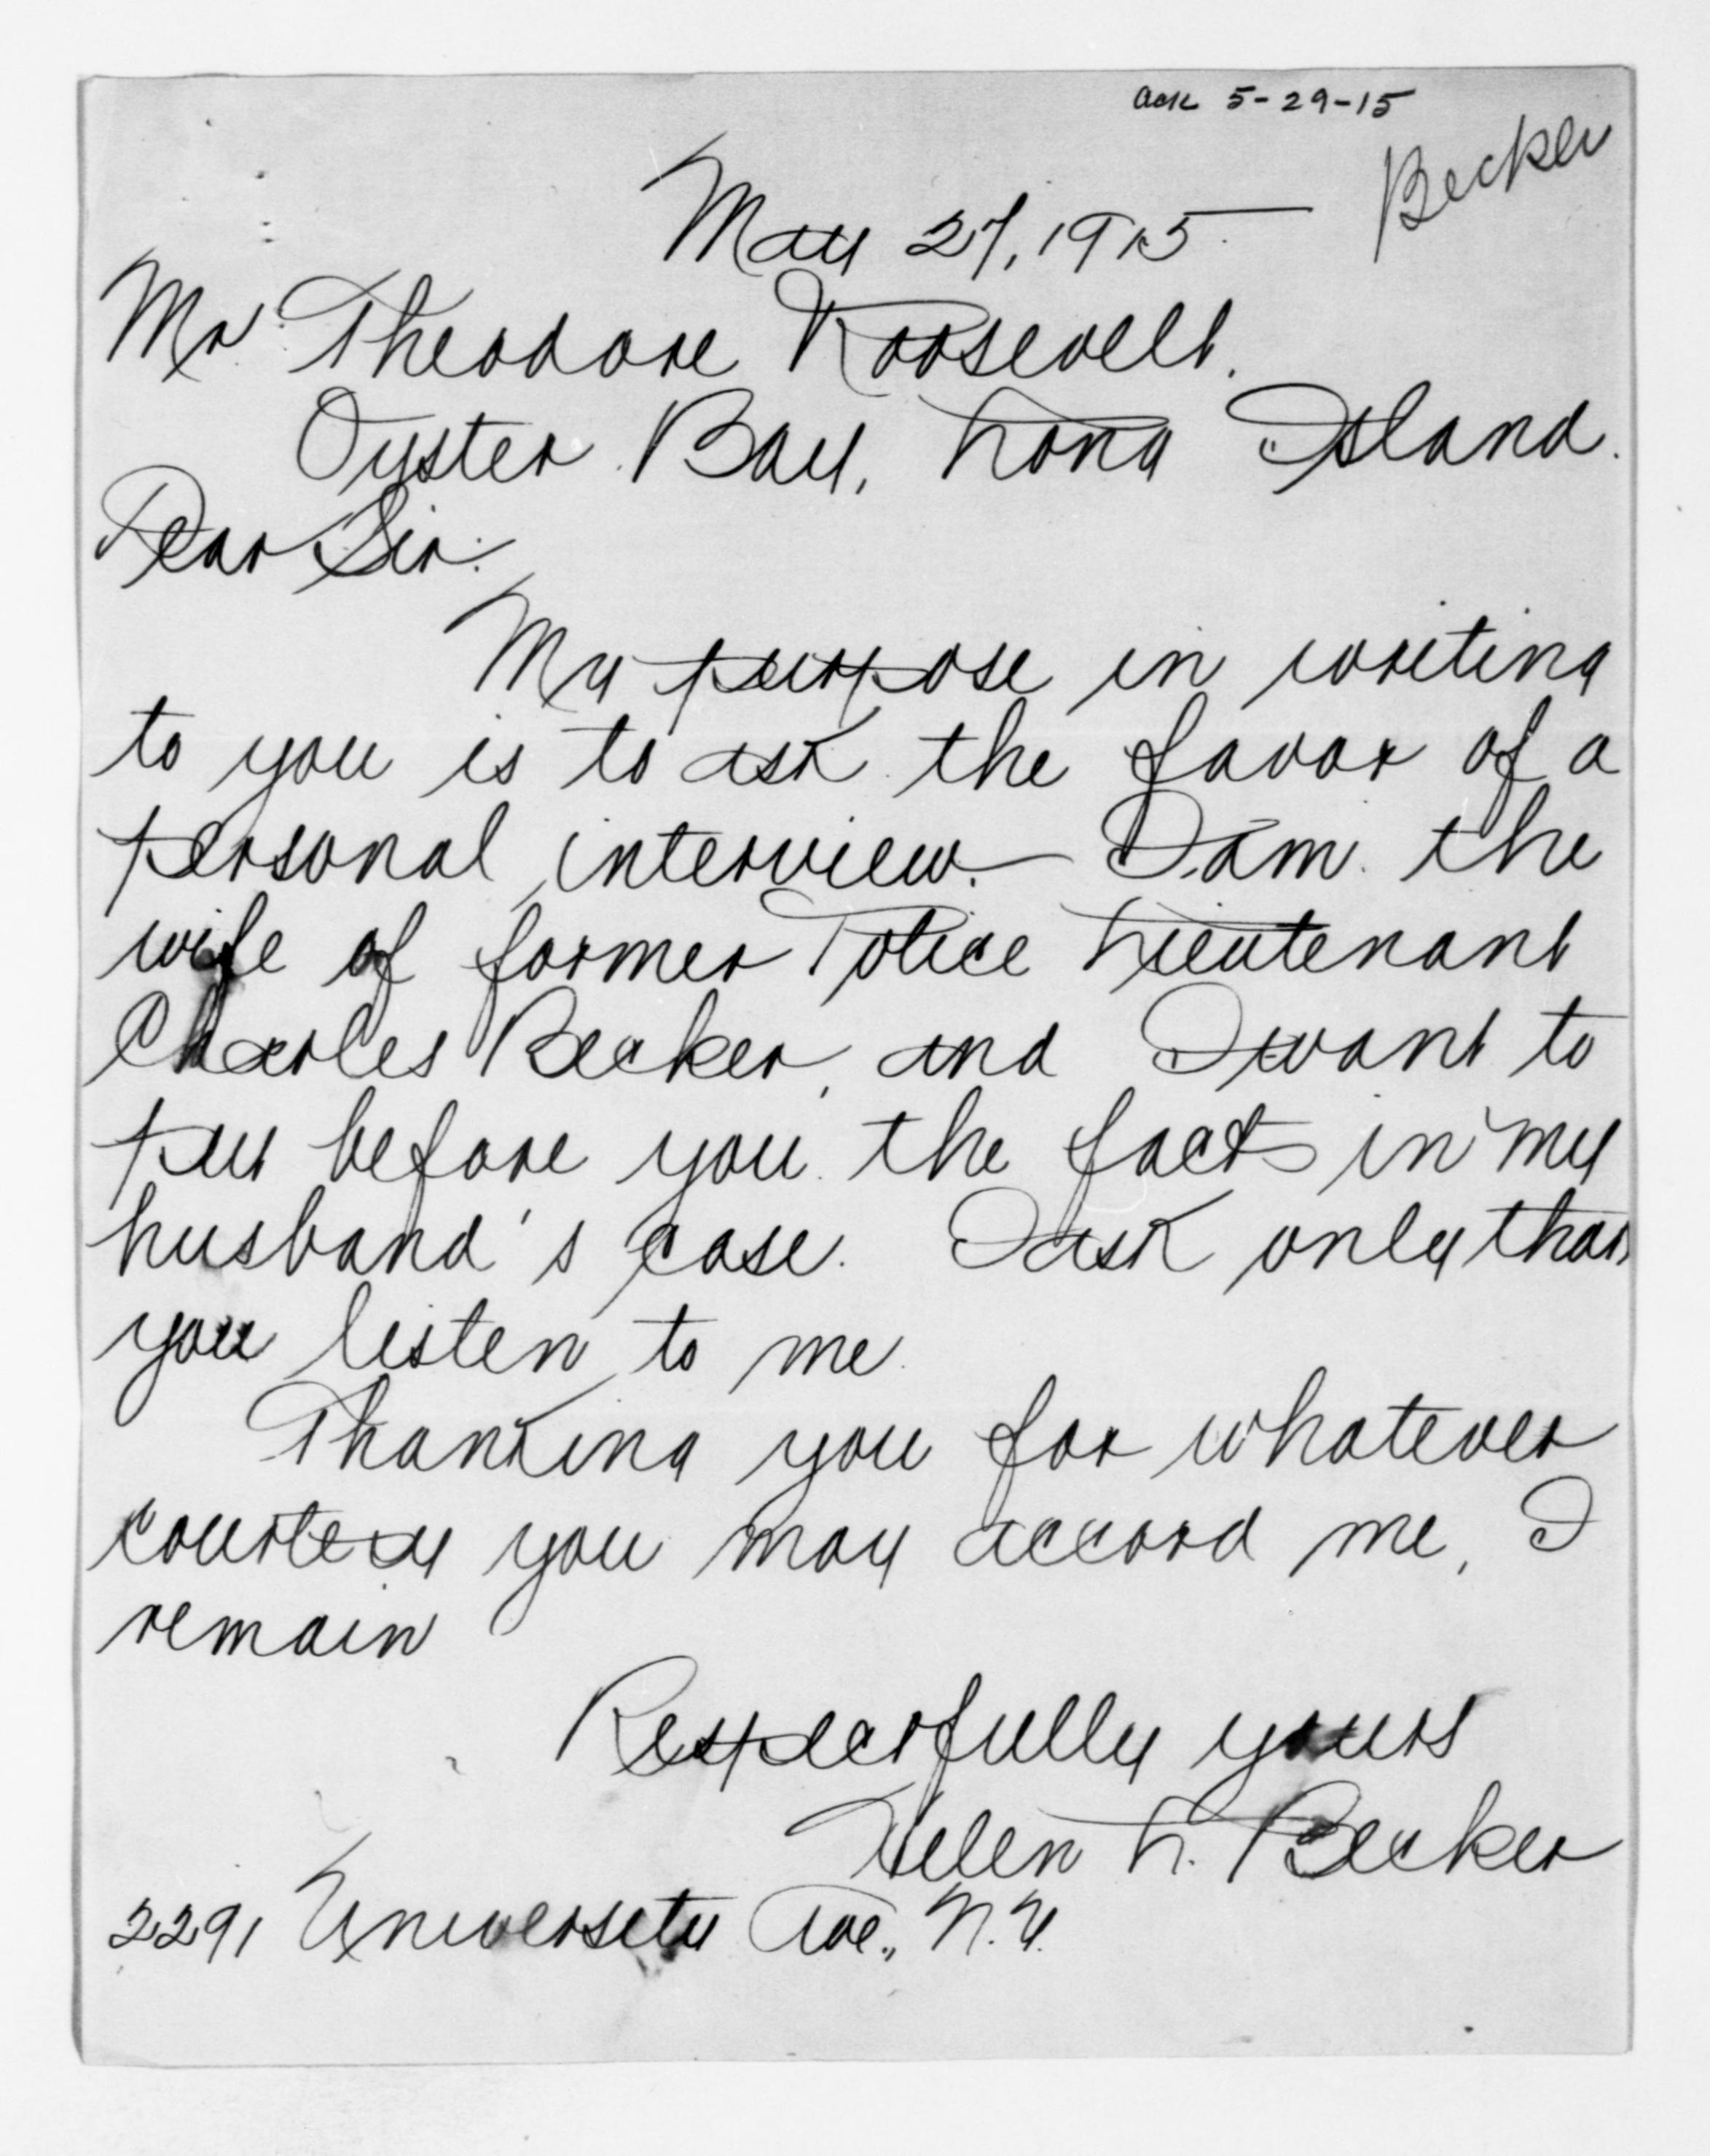 ack 5-29-15
Becker
May 27, 1915
Mr Theodore Roosevelt.
Oyster Bay, Long Island.
Dear Sir:
My purpose in writing
to you is to ask the favor of a
personal interview. I am the
wife of former Police Lieutenant
Charles Becker, and I want to
put before you the facts in my
husband's case. I ask only that
you listen to me.
Thanking you for whatever
courtesy you may accord me, I
remain
Respectfully yours
Helen L. Becker
2291 University Ave., N.Y.